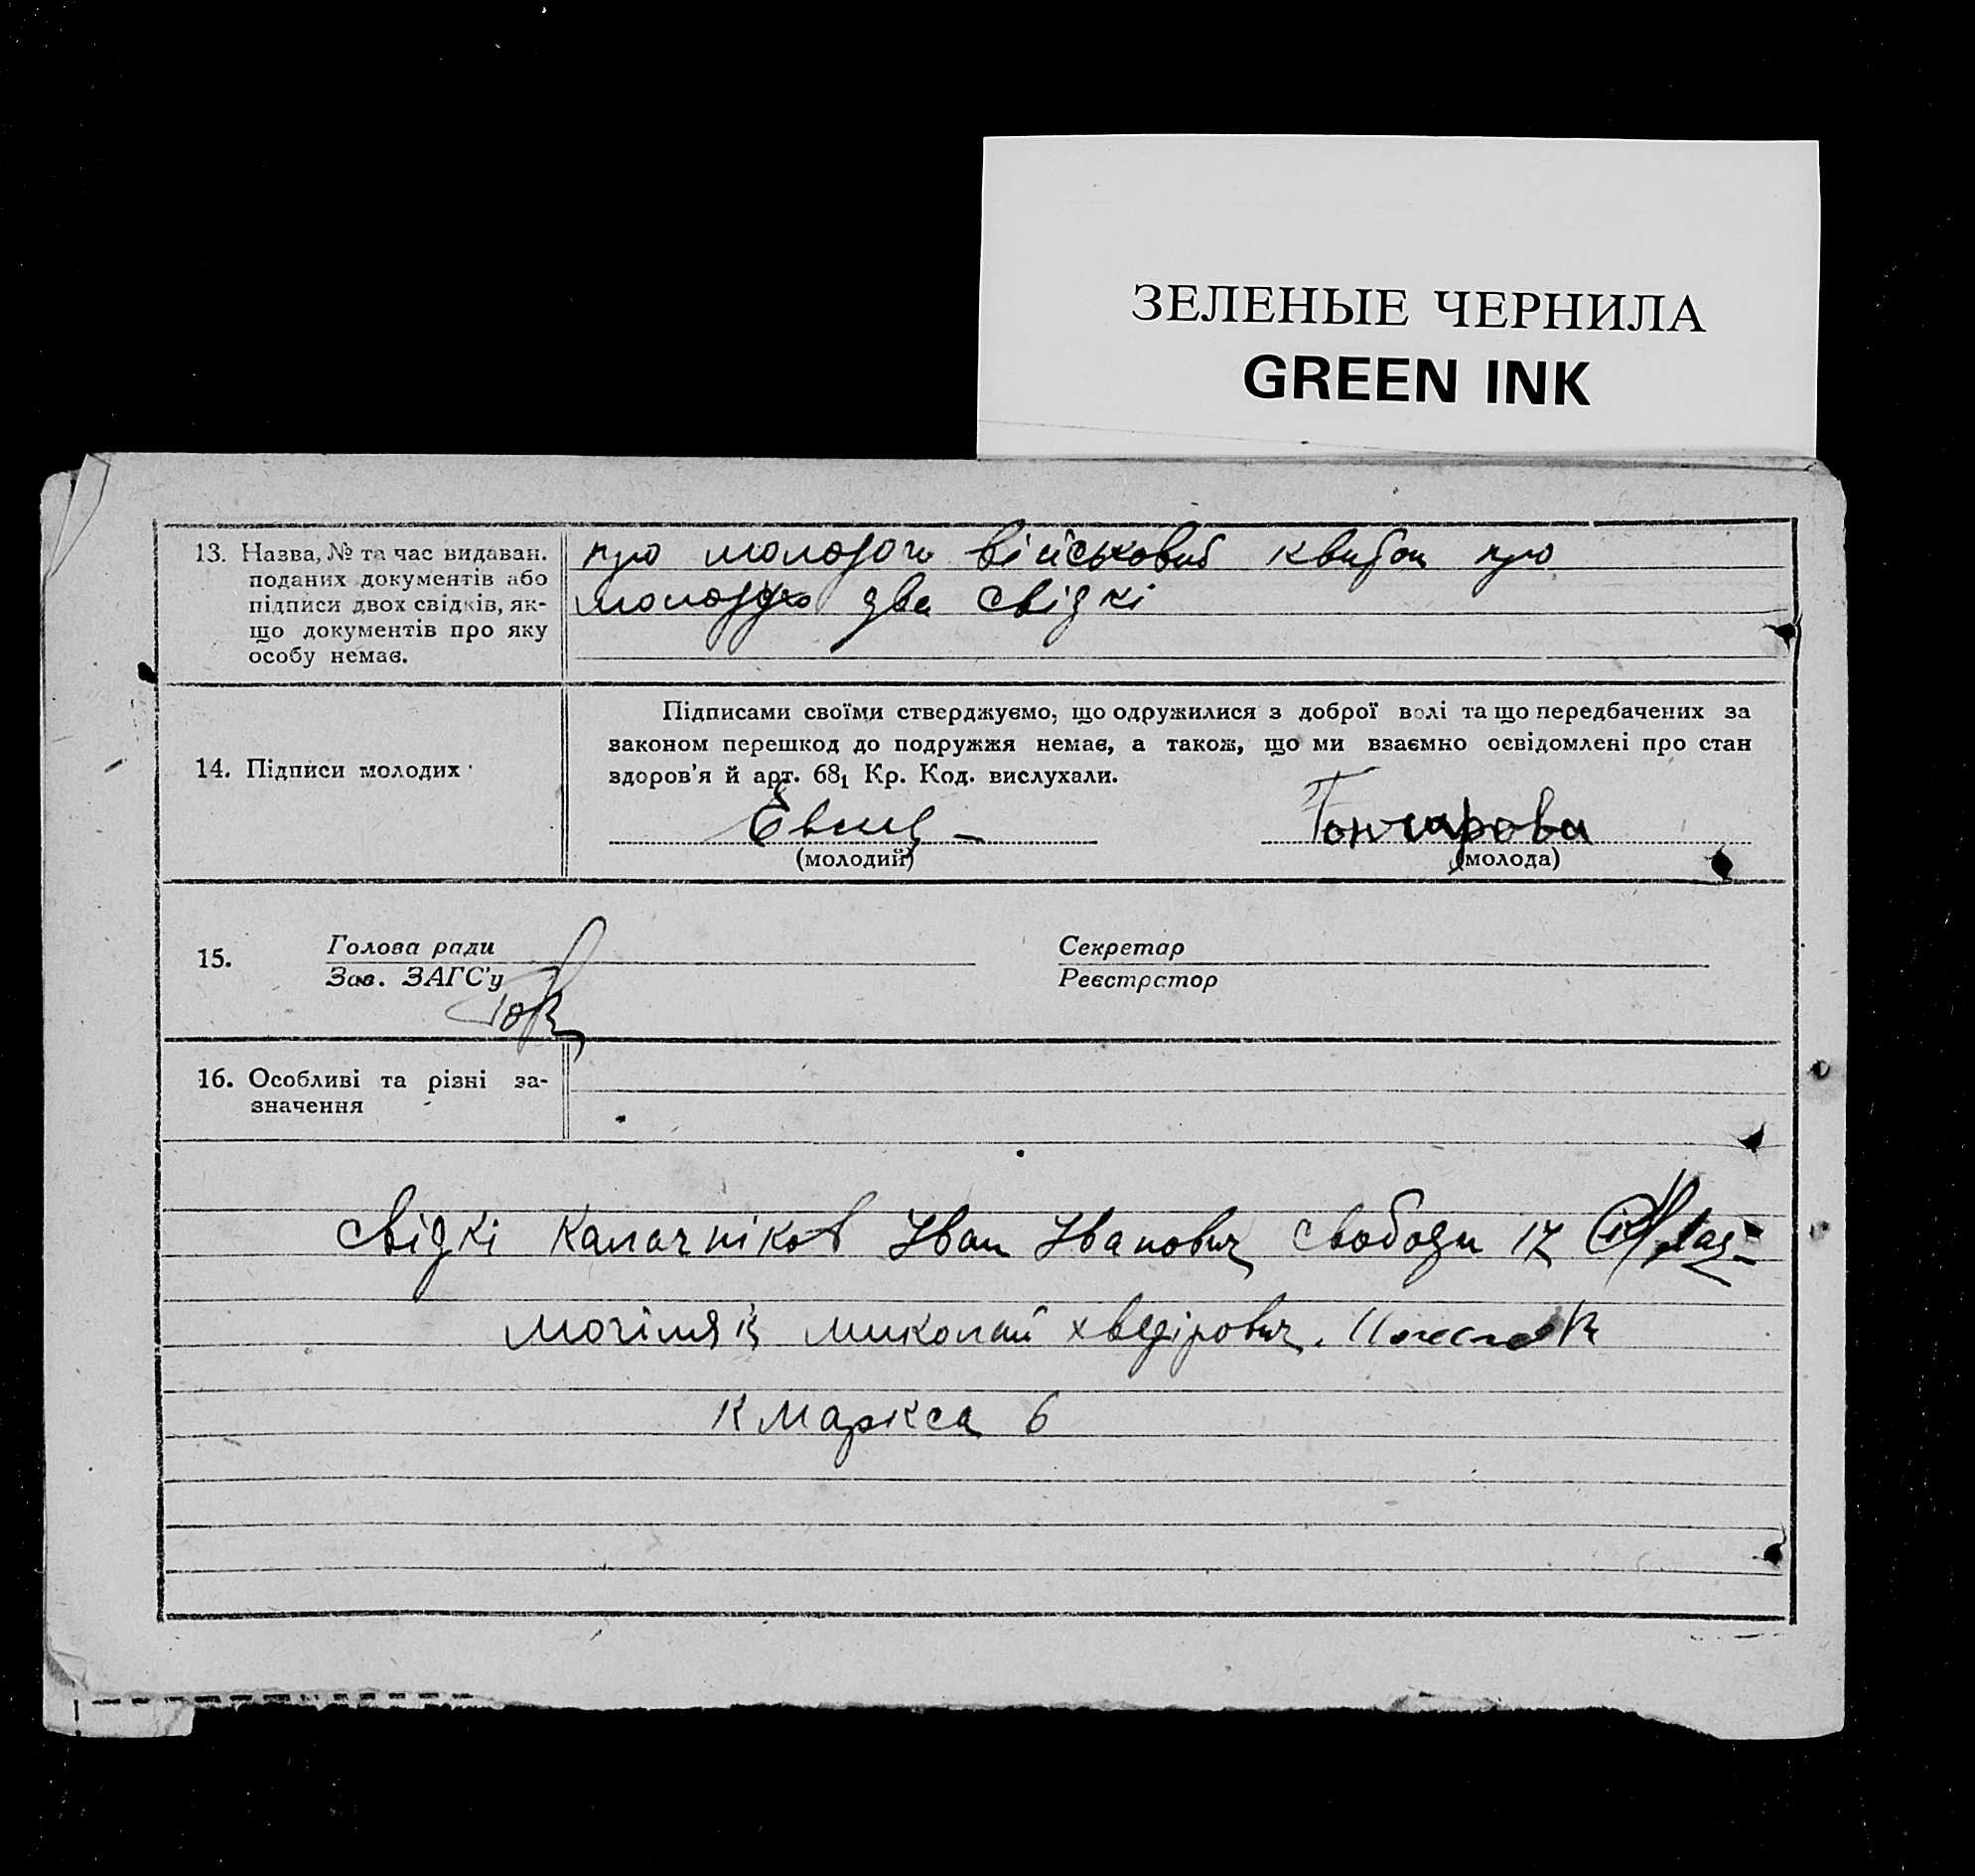 ЗЕЛЕНЫЕ ЧЕРНИЛА
GREEN INK
13. Назва, № та час видаван.
поданих документів або
підписи двох свідків, як-
що документів про яку
особу немає.
про молодого військовий квиток про
молоду два свідкі
14. Підписи молодих
Підписами своїми стверджуємо, що одружилися з доброї волі та що передбачених за
законом перешкод до подружжя немає, а також, що ми взаємно освідомлені про стан
здоров'я й арт. 68₁ Кр. Код. вислухали.
Гончарова
(молодий) (молода)
15. Голова ради Секретар
Зав. ЗАГС'у Реєстратор
16. Особливі та різні за-
значення
свідкі Калачніков Іван Іванович свободи 17
Могіляк Миколай Хведірович.
К Маркса 6